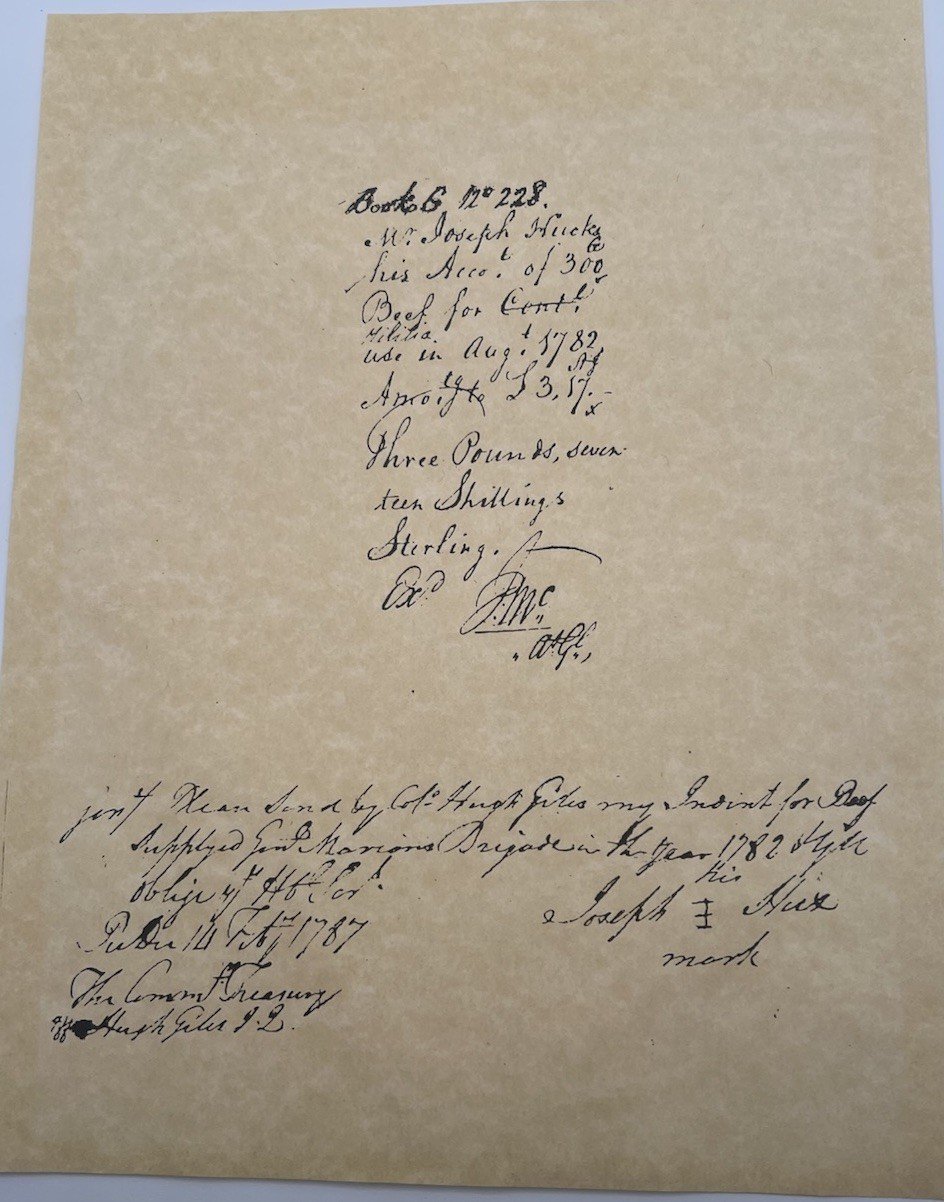 Book G No 228.
Mr. Joseph Hucks
his Acco.t of 300 lb
Beef for Cont.l
Militia
use in Aug.t 1782,
Stg
Amo.tg to £ 3,17.-
Three Pounds, seven
teen Shillings
Sterling.
Ex.d J. Mc
A. Gl.
jent Pleas Send by Colo Hugh Giles my Indint for Beef
Supplyed Genl Marions Brigade in the Year 1782 & you
oblige yr Hble Ser.t
PeeDee 14 Feby 1787
his
Joseph Hux
mark
The Commrs Treasury
Hugh Giles J.Q.